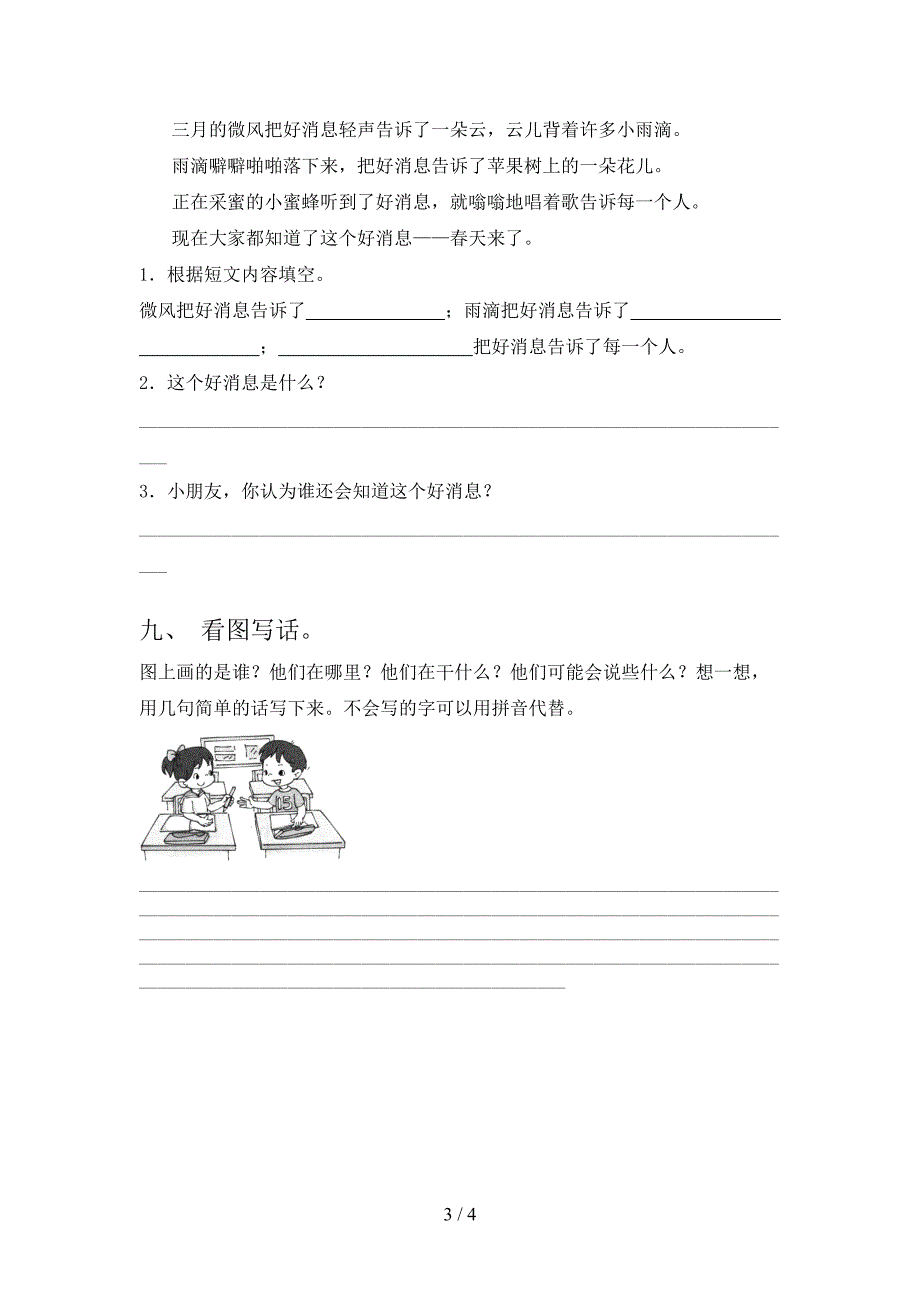 三月的微风把好消息轻声告诉了一朵云，云儿背着许多小雨滴。
雨滴噼噼啪啪落下来，把好消息告诉了苹果树上的一朵花儿。
正在采蜜的小蜜蜂听到了好消息，就嗡嗡地唱着歌告诉每一个人。
现在大家都知道了这个好消息——春天来了。
1．根据短文内容填空。
微风把好消息告诉了_______________；雨滴把好消息告诉了________________
_____________；_____________________把好消息告诉了每一个人。
2．这个好消息是什么？
3．小朋友，你认为谁还会知道这个好消息？
九、 看图写话。
图上画的是谁？他们在哪里？他们在干什么？他们可能会说些什么？想一想，
用几句简单的话写下来。不会写的字可以用拼音代替。
15
3 / 4